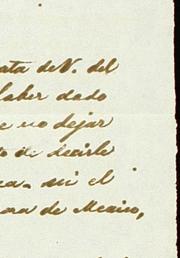 ata de V. del
haber dado
e no dejar
to de decirle
ea. mi el
ora de Mexico,